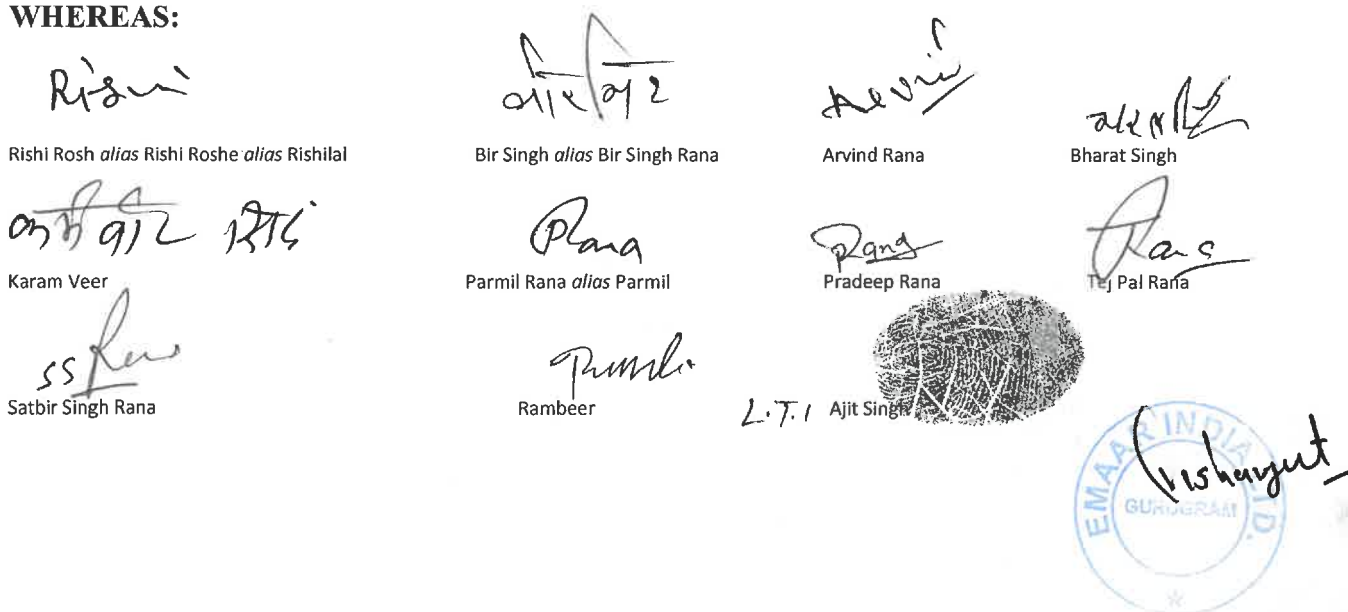 WHEREAS:
Rishi
Rishi Rosh alias Rishi Roshe alias Rishilal
Bir Singh alias Bir Singh Rana
Arvind Rana
Bharat Singh
Karam Veer
PRana
Parmil Rana alias Parmil
PRana
Pradeep Rana
Rana
Tej Pal Rana
SS Rana
Satbir Singh Rana
Rambeer
L.T.I Ajit Singh
EMAAR INDIA LTD.
GURUGRAM